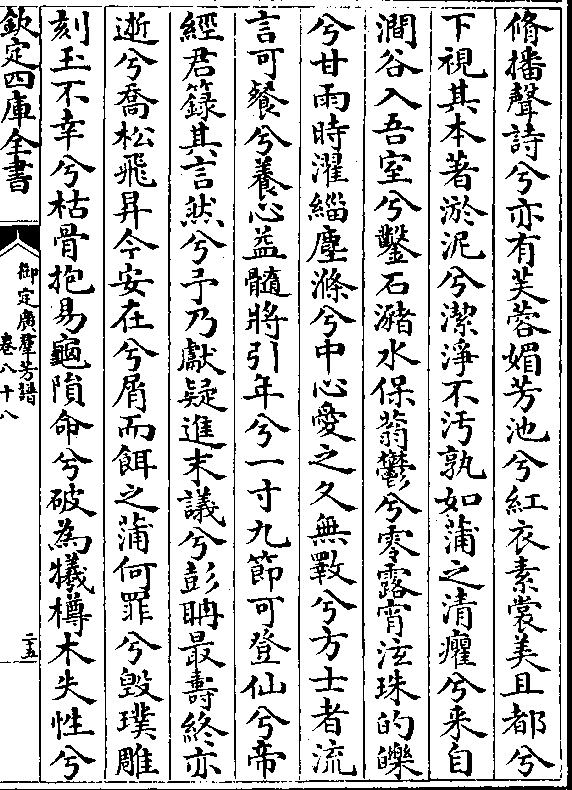 脩播聲詩兮亦有芙蓉媚芳池兮紅衣素裳美且都兮
下視其本著淤泥兮潔淨不汚孰如蒲之清癯兮来自
澗谷入吾室兮鑿石瀦水保蓊鬱兮零露宵泫珠的皪
兮甘雨時濯緇塵滌兮中心愛之久無斁兮方士者流
言可餐兮養心益髓將引年兮一寸九節可登仙兮帝
經君籙其言然兮予乃獻疑進末議兮彭聃最壽終亦
逝兮喬松飛昇今安在兮屑而餌之蒲何罪兮毀璞雕
刻玉不幸兮枯骨抱易龜隕命兮破為犧樽木失性兮
欽定四庫全書
御定廣羣芳譜
卷八十八
二五